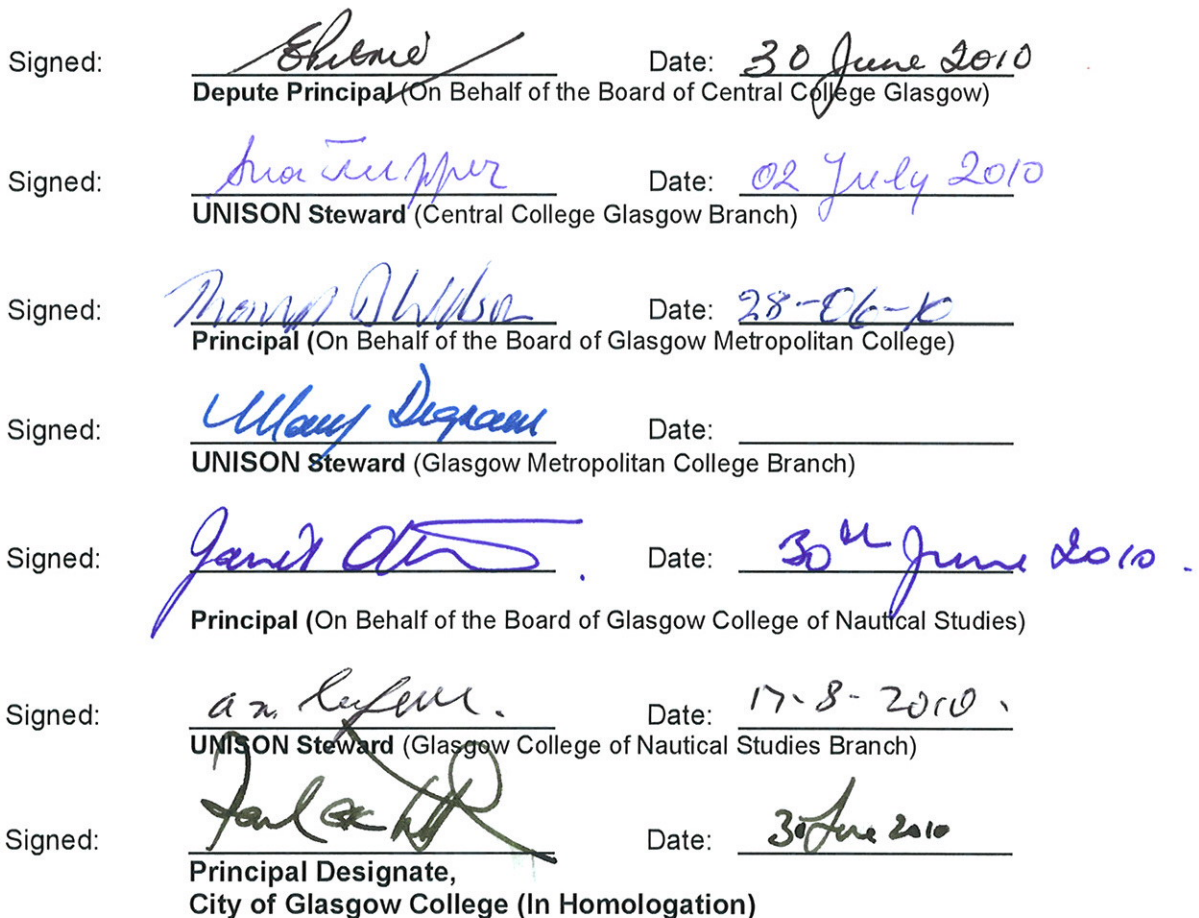 Signed: Date: 30 June 2010
Depute Principal (On Behalf of the Board of Central College Glasgow)
Signed: Date: 02 July 2010
UNISON Steward (Central College Glasgow Branch)
Signed: Date: 28-06-10
Principal (On Behalf of the Board of Glasgow Metropolitan College)
Signed: Mary Date:
UNISON Steward (Glasgow Metropolitan College Branch)
Signed: Date: 30th June 2010.
Principal (On Behalf of the Board of Glasgow College of Nautical Studies)
Signed: Date: 17-8-2010.
UNISON Steward (Glasgow College of Nautical Studies Branch)
Signed: Paul Date: 30 June 2010
Principal Designate,
City of Glasgow College (In Homologation)